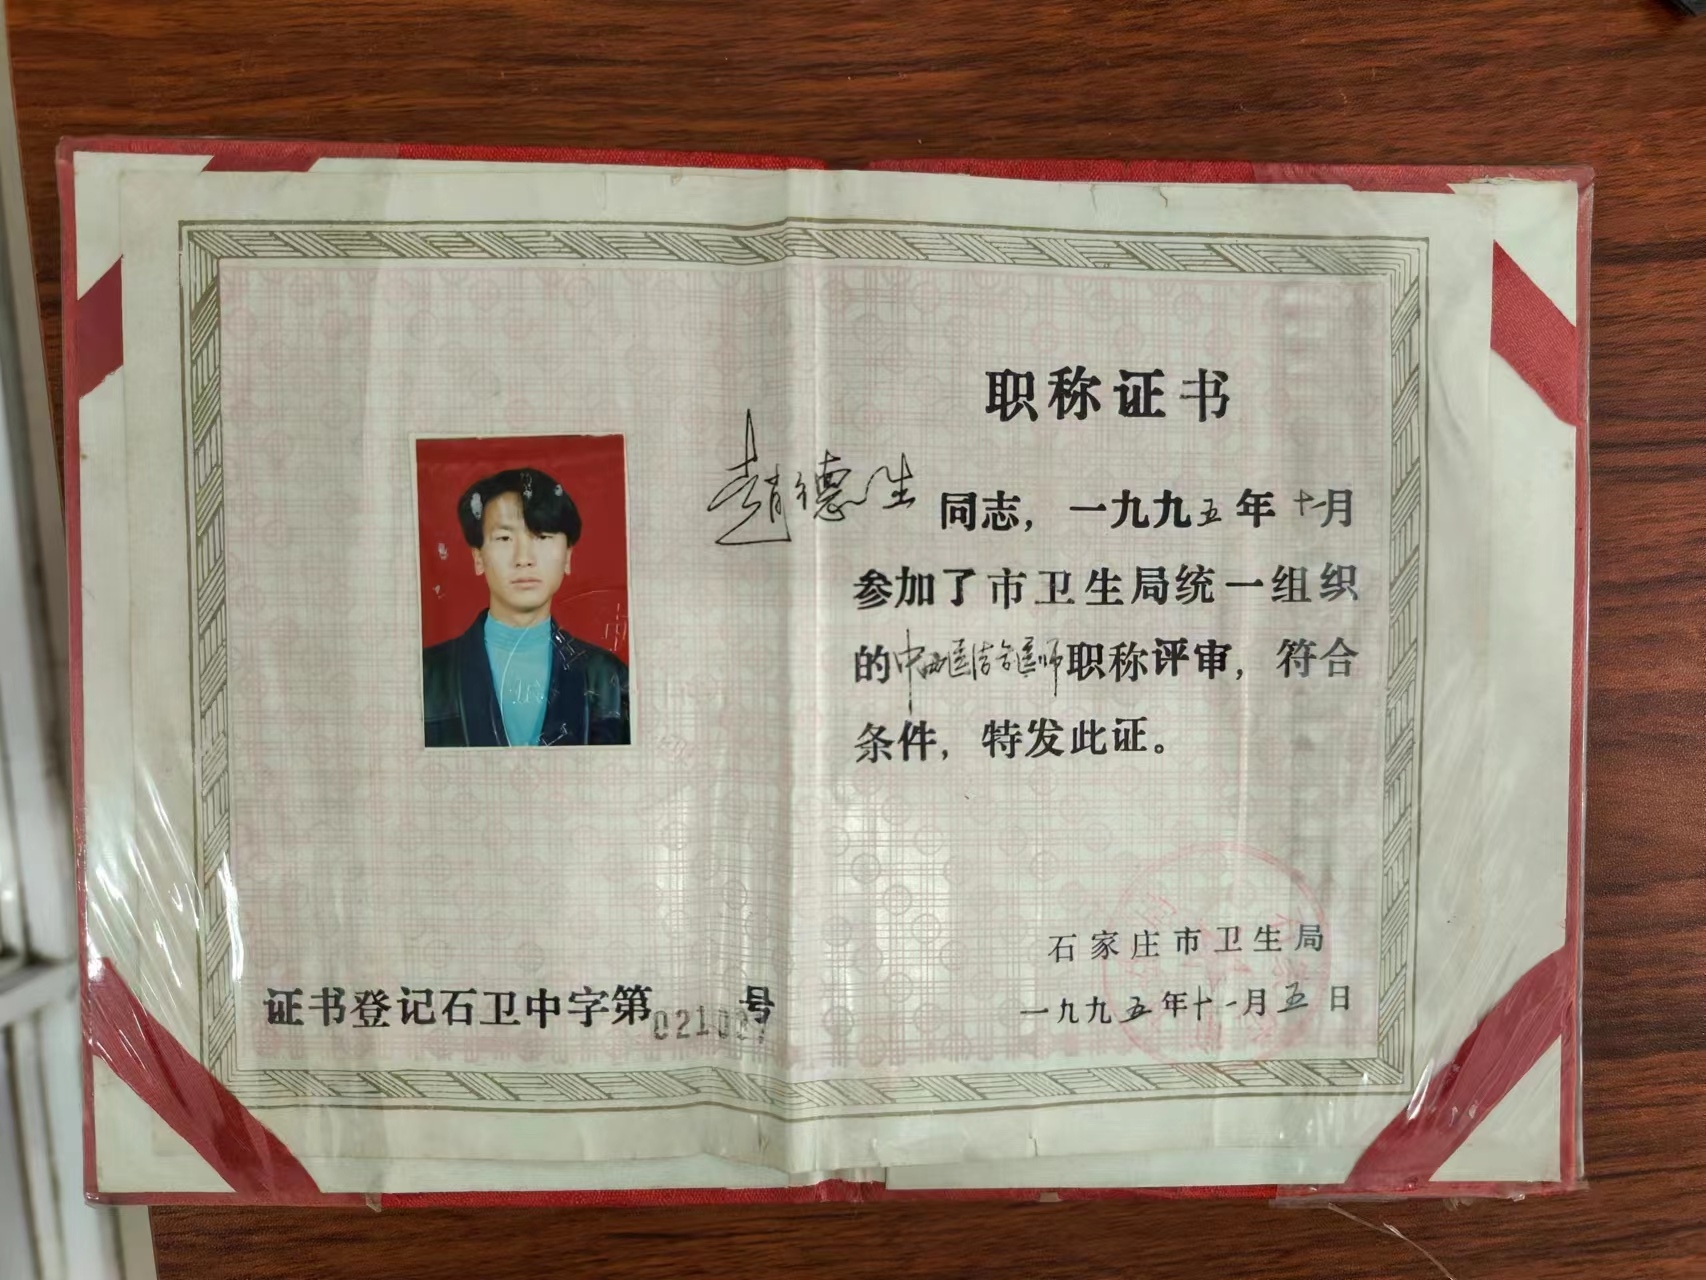 职称证书
趙德生 同志，一九九五年十一月
参加了市卫生局统一组织
的中西医结合医师职称评审，符合
条件，特发此证。
石家庄市卫生局
一九九五年十一月五日
证书登记石卫中字第021027号